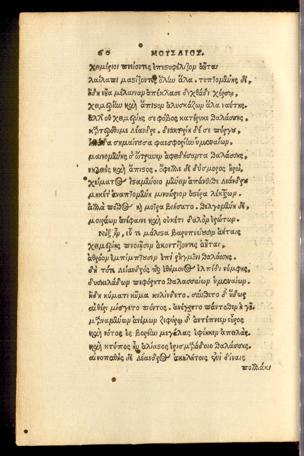 60 ΜΟΥΣΑΙΟΥ.
χειμέριοι πνείοντες ἐπεστυφέλιζον ἀῆται
λαίλαπι μαστίζοντες ὅλην ἅλα. τυπτομένης δὲ
ἤδη νῆα μέλαιναν ἀπέκλασε διχθάδι χέρσῳ,
χειμερίην καὶ ἄπιστον ἀλυσκάζων ἅλα ναύτης.
ἀλλ' οὐ χειμερίης σε φόβος κατέρυκε θαλάσσης,
καρτερόθυμε λέανδρε, διακτορίη δέ σε πύργου,
σημαίνουσα φαεσφορίην ὑμεναίων,
μαινομένης ὤτρυνεν ἀφειδήσαντα θαλάσσης,
νηλειὴς καὶ ἄπιστος. ὄφελλε δὲ δύσμορος ἡρὼ,
χείματος ἱσταμένοιο μένειν ἀπάνευθε λεάνδρου
μηκέτ' ἀναπτομένη μινυώριον ἀστέρα λέκτρων.
ἀλλὰ πόθος καὶ μοῖρα βιήσατο. θελγομένη δὲ
μοιράων ἀνέφαινε καὶ οὐκέτι δαλὸν ἐρώτων.
Νὺξ ἦν, εὖτε μάλιστα βαρυπνείοντες ἀῆται,
χειμερίαις πνοιῇσιν ἀκοντίζοντες ἀῆται,
ἀθρόον ἐμπίπτουσιν ἐπὶ ῥηγμῖνι θαλάσσης.
δὴ τότε λείανδρός περ ἐθήμονος ἐλπίδι νύμφης,
δυσκελάδων πεφόρητο θαλασσαίων ὑμεναίων.
ἤδη κύματι κῦμα κυλίνδετο. σύγχυτο δ' ὕδωρ
αἰθέρι μίσγετο πόντος. ἀνέγρετο πάντοθεν ἠχὴ
μαρναμένων ἀνέμων. ζεφύρῳ δ' ἀντέπνεεν εὖρος
καὶ νότος ἐς βορέην μεγάλας ἐφέηκεν ἀπειλάς.
καὶ κτύπος ἦν ἀλίαστος ἐρισμαράγδοιο θαλάσσης.
αἰνοπαθὴς δὲ λέανδρος ἀκηλήτοις ἐνὶ δίναις
πολλάκι